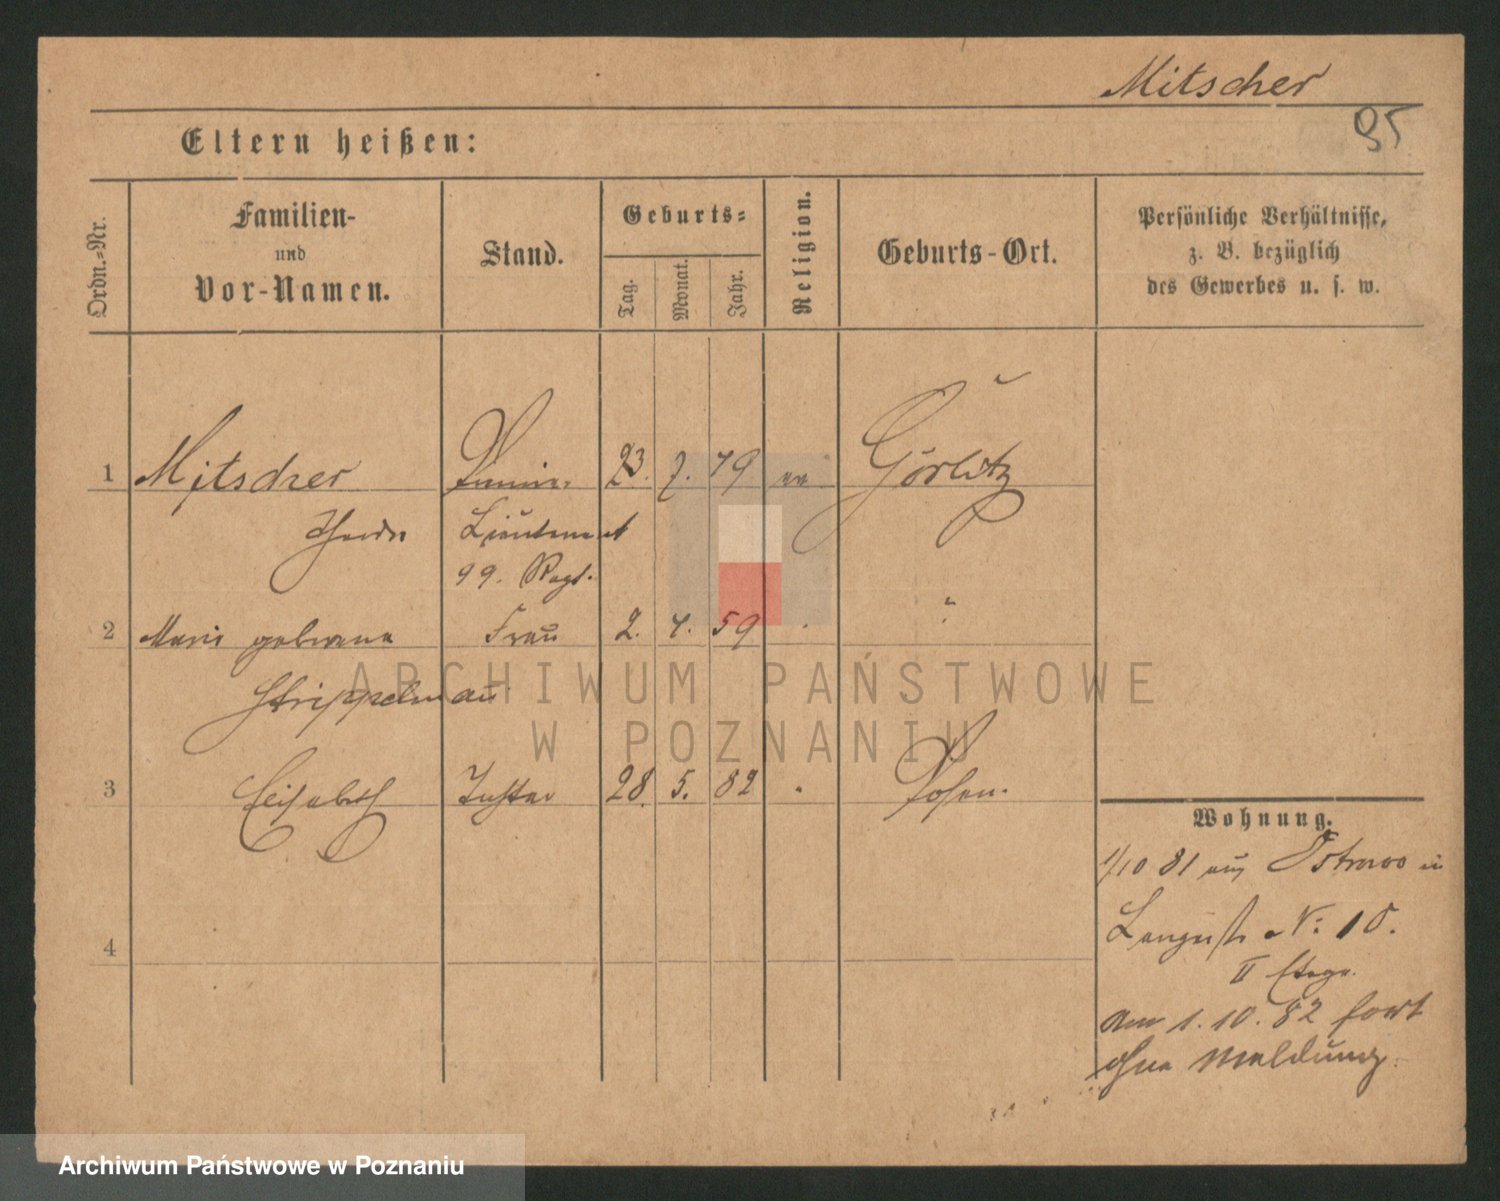 Mitscher
95
Eltern heißen:
Ordn.-Nr.
Familien-
und
Vor-Namen.
Stand.
Geburts-
Tag.
Monat.
Jahr.
Religion.
Geburts-Ort.
Persönliche Verhältnisse,
z. B. bezüglich
des Gewerbes u. s. w.
1 Mitscher 23. 7. 49 ev Görlitz
Lieutenant
99. Regt.
2 Marie geborene Frau 2. 4. 59 "
Strippelmann
3 Elisabeth Tochter 28. 5. 82 " Posen.
4
Wohnung.
1/10 81 aus Ostrowo in
Langestr No 10.
II Etage.
Am 1.10.82 fort
ohne Meldung.
ARCHIWUM PAŃSTWOWE
W POZNANIU
Archiwum Państwowe w Poznaniu